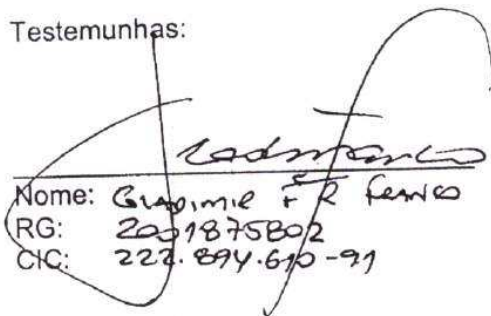 Testemunhas:
Nome: Gladimir F R Franco
RG: 2001875802
CIC: 222.894.610-91